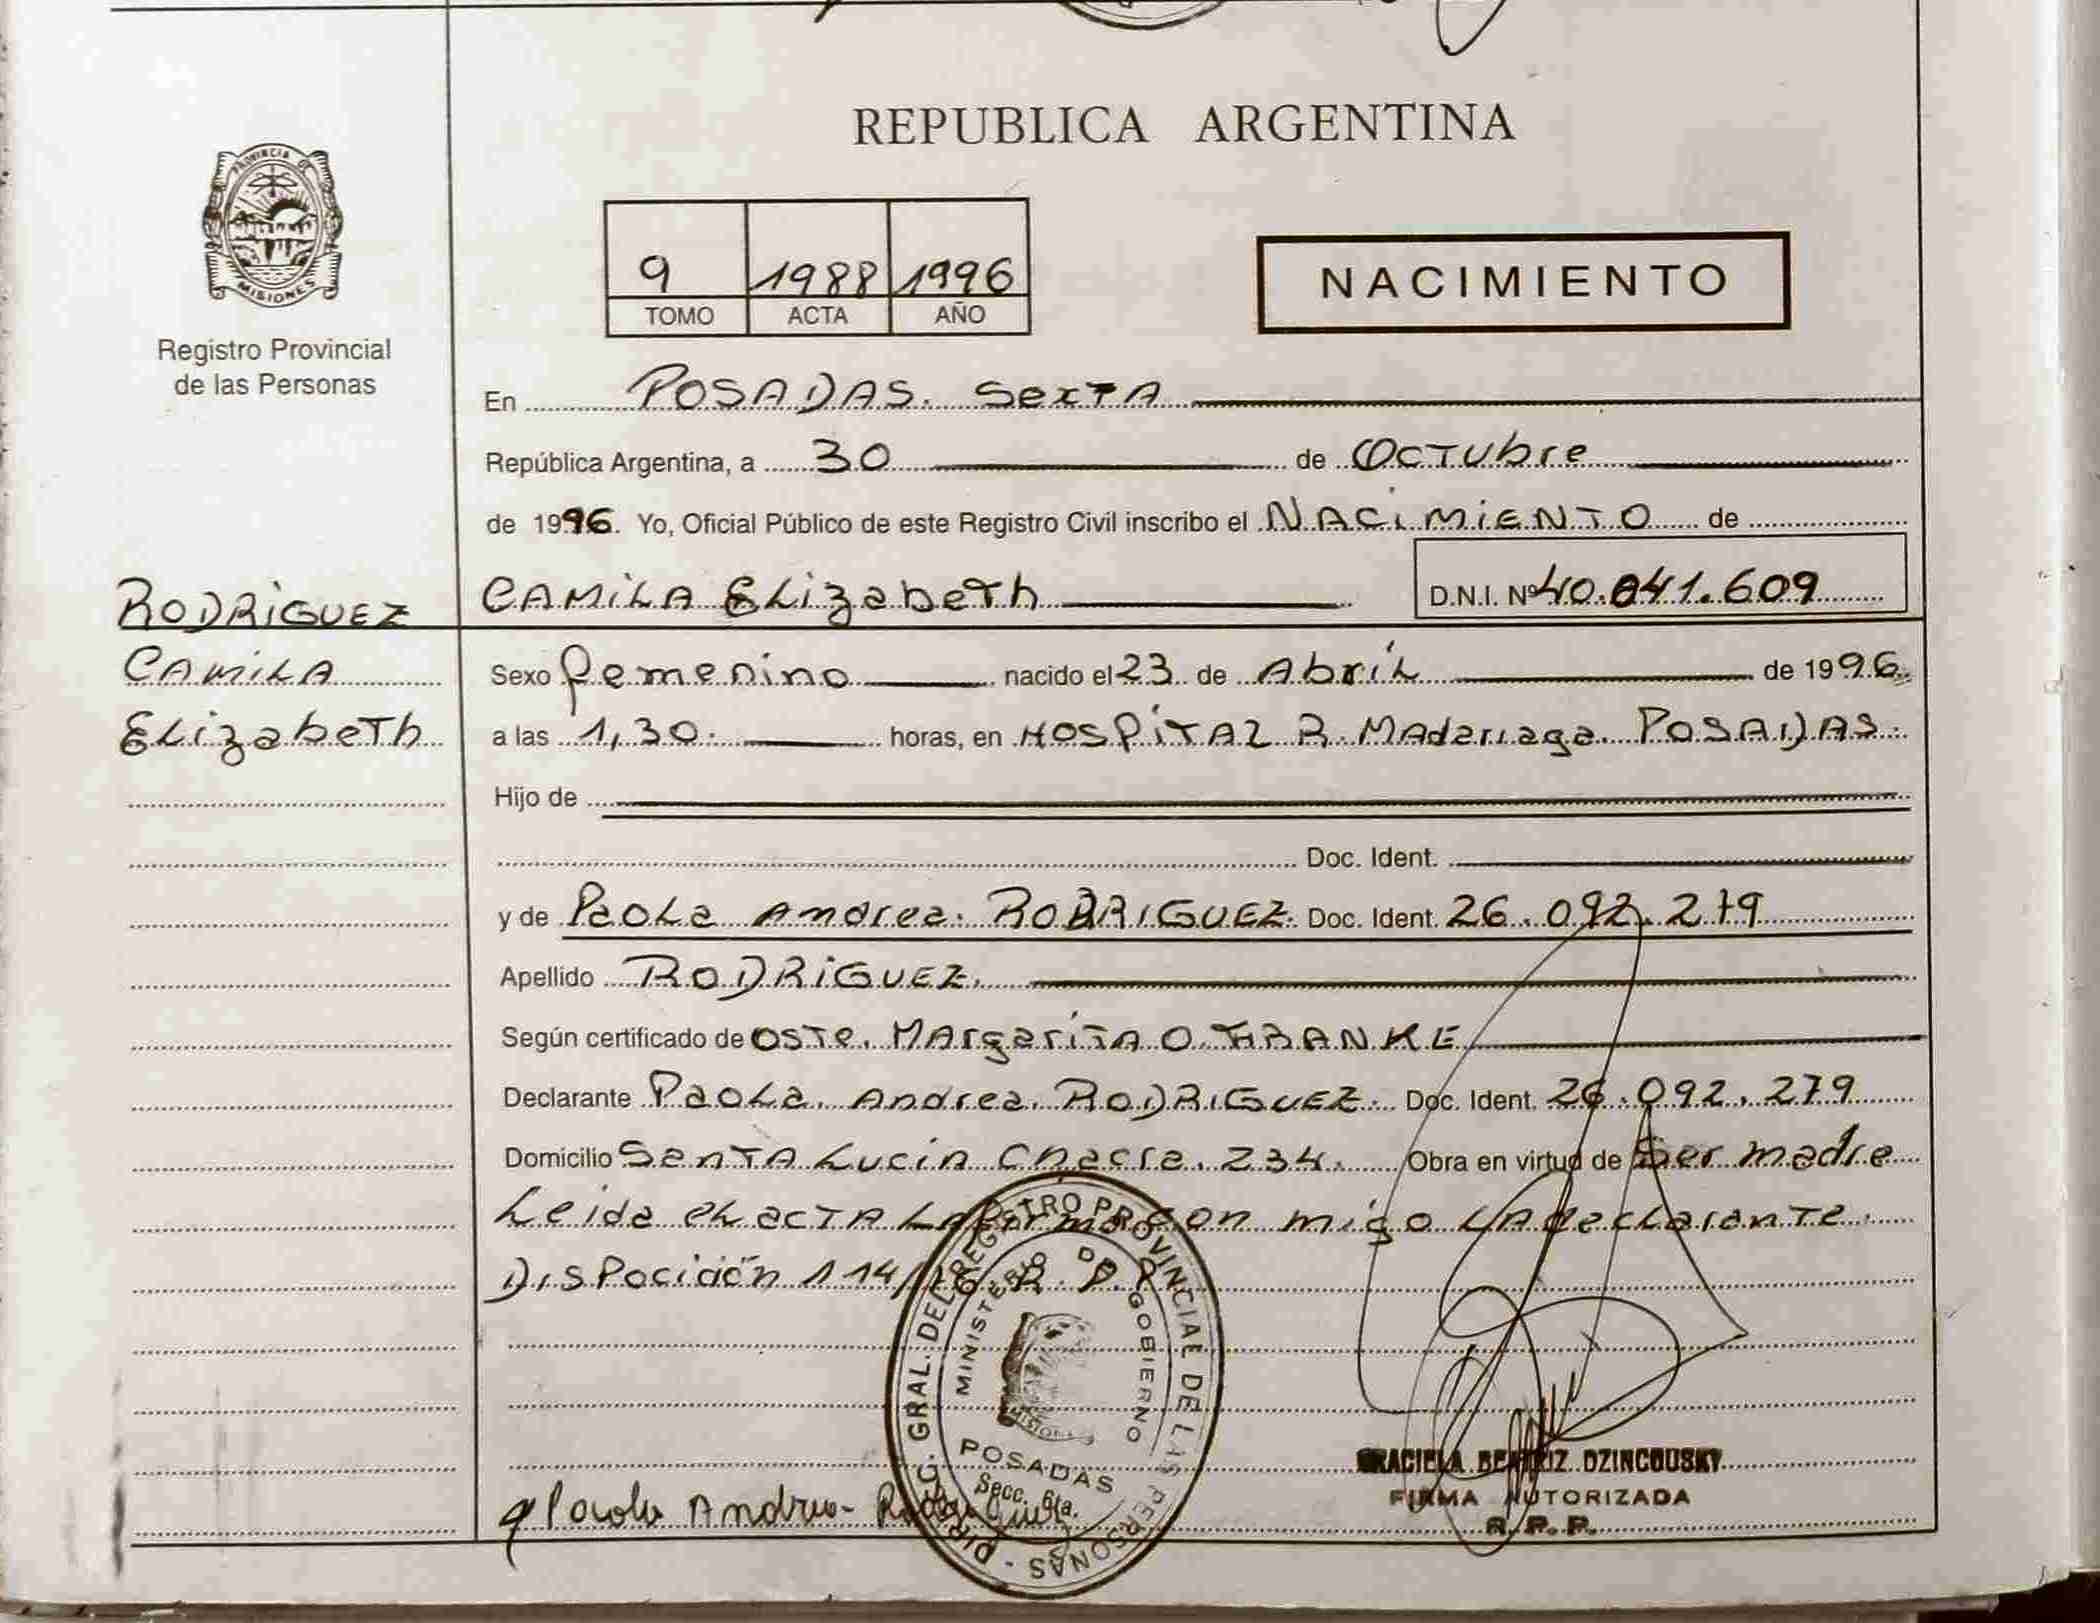 REPUBLICA ARGENTINA
PROVINCIA DE
MISIONES
Registro Provincial
de las Personas
9 1988 1996
TOMO ACTA AÑO
NACIMIENTO
En POSADAS. Sexta
República Argentina, a 30 de Octubre
de 1996. Yo, Oficial Público de este Registro Civil inscribo el NACIMIENTO de
CAMILA Elizabeth D.N.I. Nº 40.041.609
RODRIGUEZ
CAMILA
Elizabeth
Sexo femenino nacido el 23 de Abril de 1996.
a las 1,30. horas, en HOSPITAL R. MAdariaga. POSADAS.
Hijo de
Doc. Ident.
y de Paola Andrea. RODRIGUEZ. Doc. Ident. 26.092.279
Apellido RODRIGUEZ.
Según certificado de OSTe. MArgarita O. FRANKE
Declarante Paola. Andrea. RODRIGUEZ. Doc. Ident. 26.092.279
Domicilio Santa Lucia Chacra. 234. Obra en virtud de Ser madre
Leida el acta la firma con migo la declarante.
Disposición 114/ R.P.P.
DIREC. GRAL. DEL REGISTRO PROVINCIAL DE LAS PERSONAS
MINISTERIO DE GOBIERNO
MISIONES
POSADAS
Secc. 6ta.
GRACIELA BEATRIZ DZINCOUSKY
FIRMA AUTORIZADA
R.P.P.
Paola Andrea Rodriguez